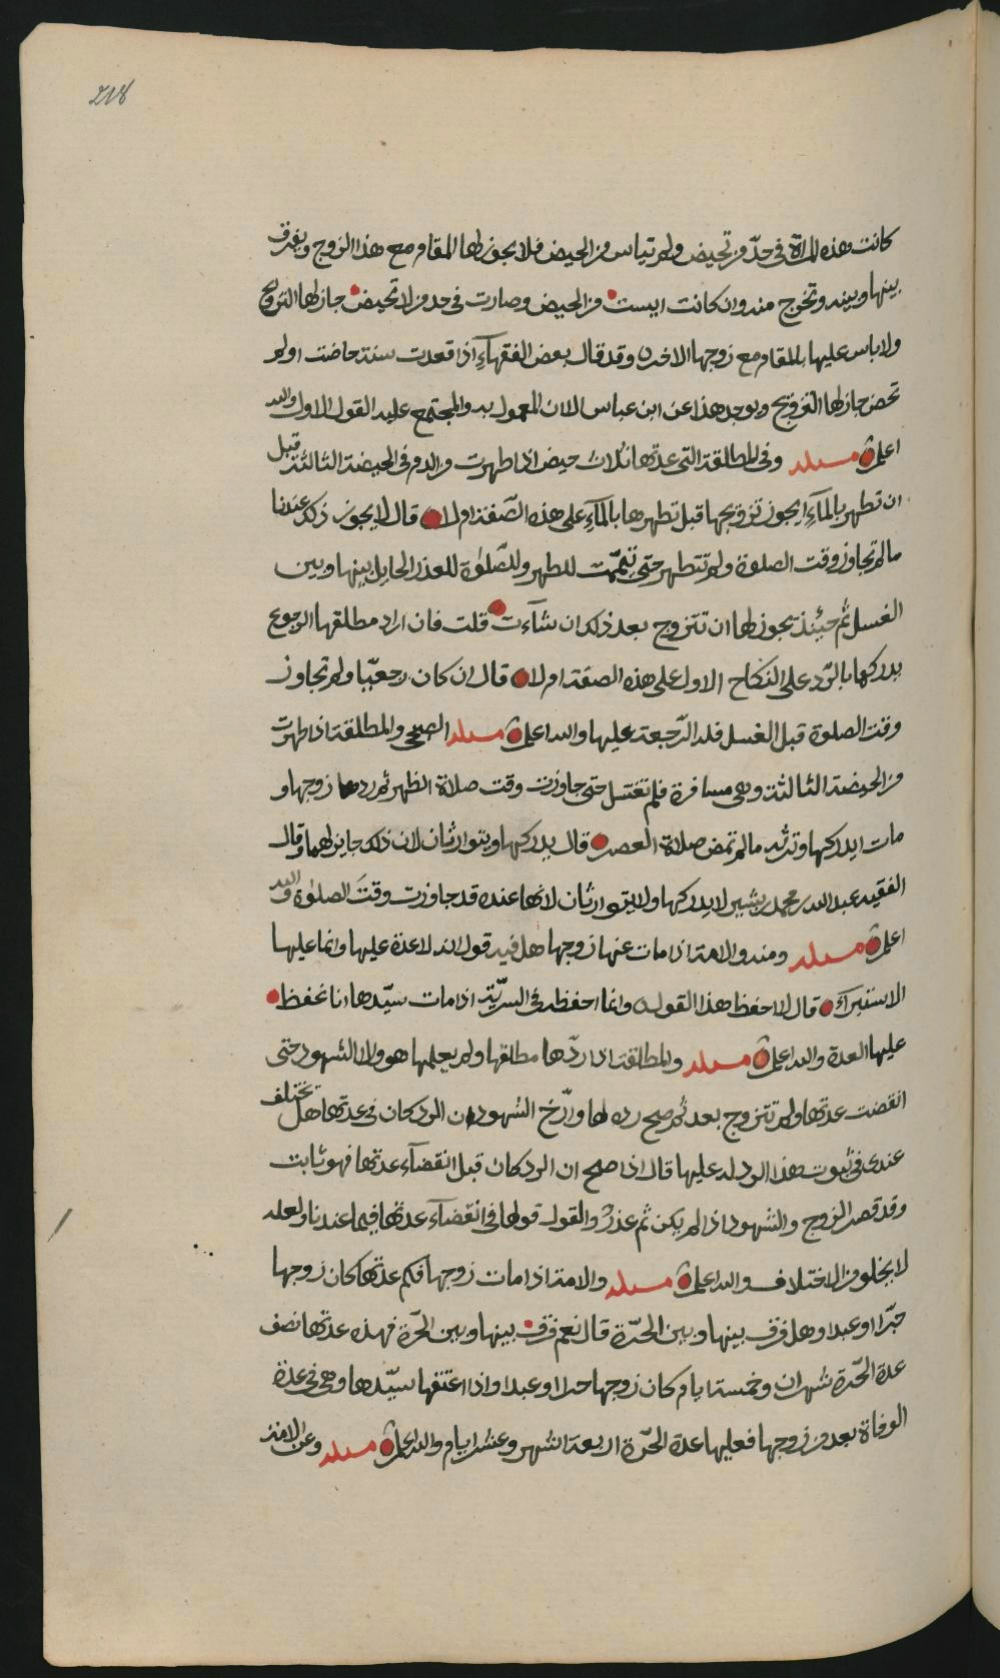 218
كانت هذه المراة فى حدّ من تحيض ولم تياس من الحيض فلا يجوز لها المقام مع هذا الزوج ويفرق
بينها وبينه وتخرج منه وان كانت ايست من الحيض وصارت فى حد من لا تحيض جاز لها التزويج
ولا باس عليها بالمقام مع زوجها الاخر وقد قال بعض الفقهآء اذا قعدت سنة حاضت او لم
تحض جاز لها التزويج ويوجد هذا عن ابن عباس الا ان المعمول به والمجتمع عليه القول الاول والله
اعلم مسئلة وفى المطلقة التى عدتها ثلاث حيض اذا طهرت من الدم فى الحيضة الثالثة قبل
ان تطهر بالمآء ايجوز تزويجها قبل تطهرها بالمآء على هذه الصّفة ام لا قال لا يجوز ذلك عندنا
مالم تجاوز وقت الصلوة ولم تتطهر حتى تيمّمت للطهر وللصّلوة للعذر الحايل بينها وبين
الغسل ثم حينئذ يجوز لها ان تتزوج بعد ذلك ان شآءت قلت فان اراد مطلقها الرجوع
يدركها بالرّد على النكاح الاول على هذه الصفة ام لا قال ان كان رجعيّا ولم تجاوز
وقت الصلوة قبل الغسل فله الرّجعة عليها والله اعلم مسئلة الصبحى والمطلقة اذا طهرت
من الحيضة الثالثة وهى مسافرة فلم تغتسل حتى جاوزت وقت صلاة الظهر ثم ردها زوجها و
مات ايدركها وترثه مالم تمض صلاة العصر قال يدركها ويتوارثان لان ذلك جايز لهما وقال
الفقيه عبد الله بن محمد بن بشير لا يدركها ولا يتوارثان لانها عنده قد جاوزت وقت الصلوة والله
اعلم مسئلة ومنه والامة اذا مات عنها زوجها هل فيه قول انه لا عدة عليها وانما عليها
الاستبرآء قال لا احفظ هذا القول وانما احفظه فى السرّية اذا مات سيّدها انا نحفظ
عليها العدة والله اعلم مسئلة والمطلقة اذا ردّها مطلقها ولم يعلمها هو ولا الشهود حتى
انقضت عدتها ولم تتزوج بعد ثم صح رده لها وارّخ الشهود ان الرد كان فى عدتها هل تختلف
عندى فى ثبوت هذا الرد له عليها قال اذا صح ان الرد كان قبل انقضآء عدتها فهو ثابت
وقد قصر الزوج والشهود اذا لم يكن ثم عذر والقول قولها فى انقضآء عدتها فيما عندنا ولعله
لا يخلو من الاختلاف والله اعلم مسئلة والامة اذا مات زوجها فكم عدتها كان زوجها
حرّا او عبدا وهل فرق بينها وبين الحرّة قال نعم فرق بينها وبين الحرّة فهذه عدتها نصف
عدة الحرّة شهران وخمسة ايام كان زوجها حرا او عبدا واذا اعتقها سيّدها وهى فى عدة
الوفاة بعد من زوجها فعليها عدة الحرّة اربعة اشهر وعشرا ايام والله اعلم مسئلة وعن الامة